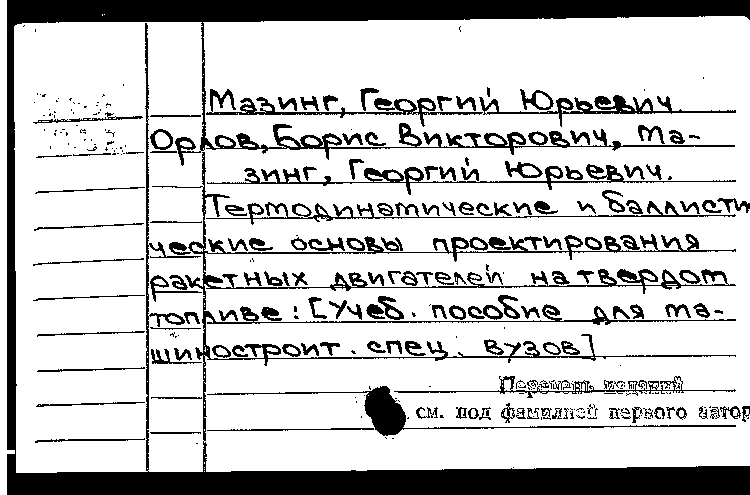 Мазинг, Георгий Юрьевич.
Орлов, Борис Викторович, Ма-
зинг, Георгий Юрьевич.
Термодинамические и баллисти
ческие основы проектирования
ракетных двигателей на твердом
топливе: [Учеб. пособие для ма-
шиностроит. спец. вузов].
Перечень изданий
см. под фамилией первого автор